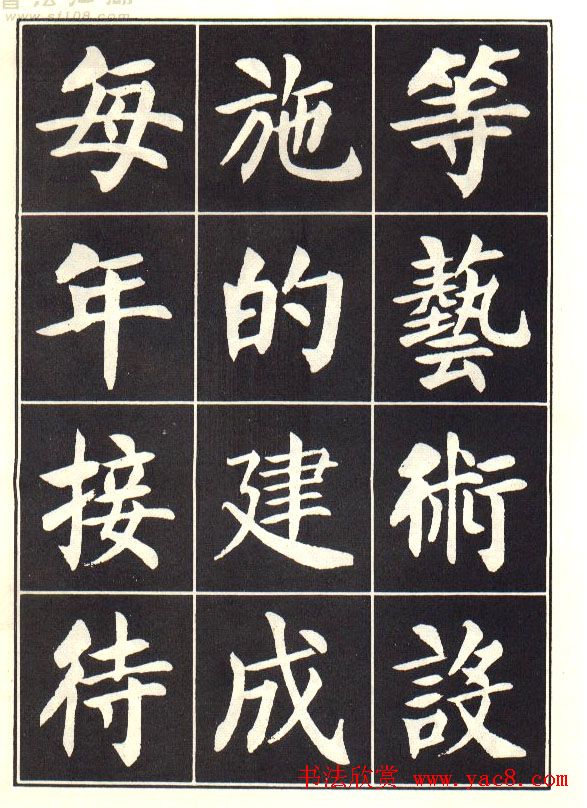 www.sf108.com
等藝術設
施的建成
每年接待
书法欣赏 www.yac8.com